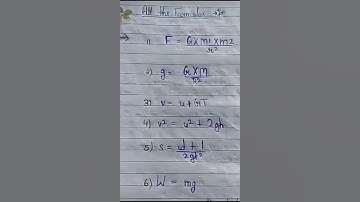 All the Formulas →
1) F = G×m1×m2
r²
2) g = G×M
r²
3) v = u+GT
4) v² = u² + 2gh
5) s = ut + 1
2gt²
6) W = mg